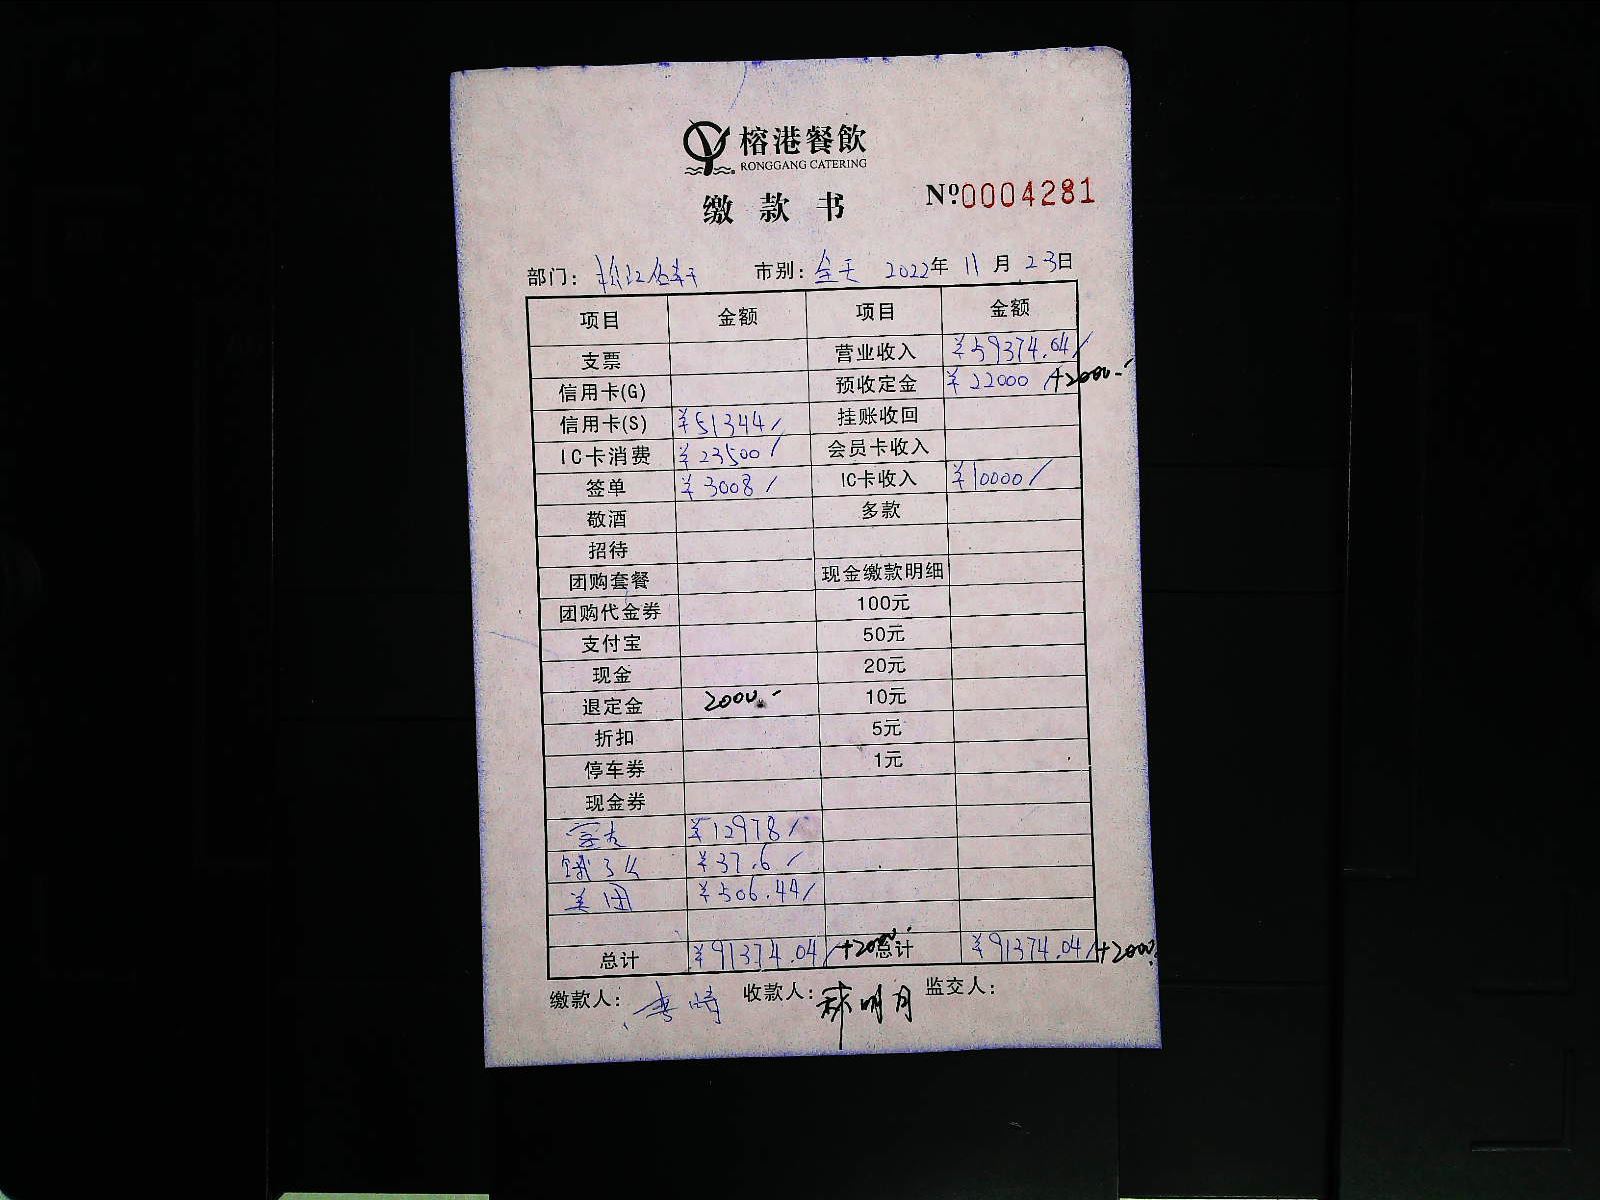 榕港餐飲
RONGGANG CATERING
缴款书
Nº.0004281
部门： 市别：全天 2022年11月23日
项目 金额 项目 金额
支票 营业收入 ¥59374.04/
信用卡(G) 预收定金 ¥22000 /+2000.-
信用卡(S) ¥51344/ 挂账收回
IC卡消费 ¥23500/ 会员卡收入
签单 ¥3008/ IC卡收入 ¥10000/
敬酒 多款
招待
团购套餐 现金缴款明细
团购代金券 100元
支付宝 50元
现金 20元
退定金 2000.- 10元
折扣 5元
停车券 1元
现金券
¥12978/
饿了么 ¥37.6/
美团 ¥506.44/
总计 ¥91374.04/+2000.- 总计 ¥91374.04/+2000.
缴款人： 收款人：林明月 监交人：